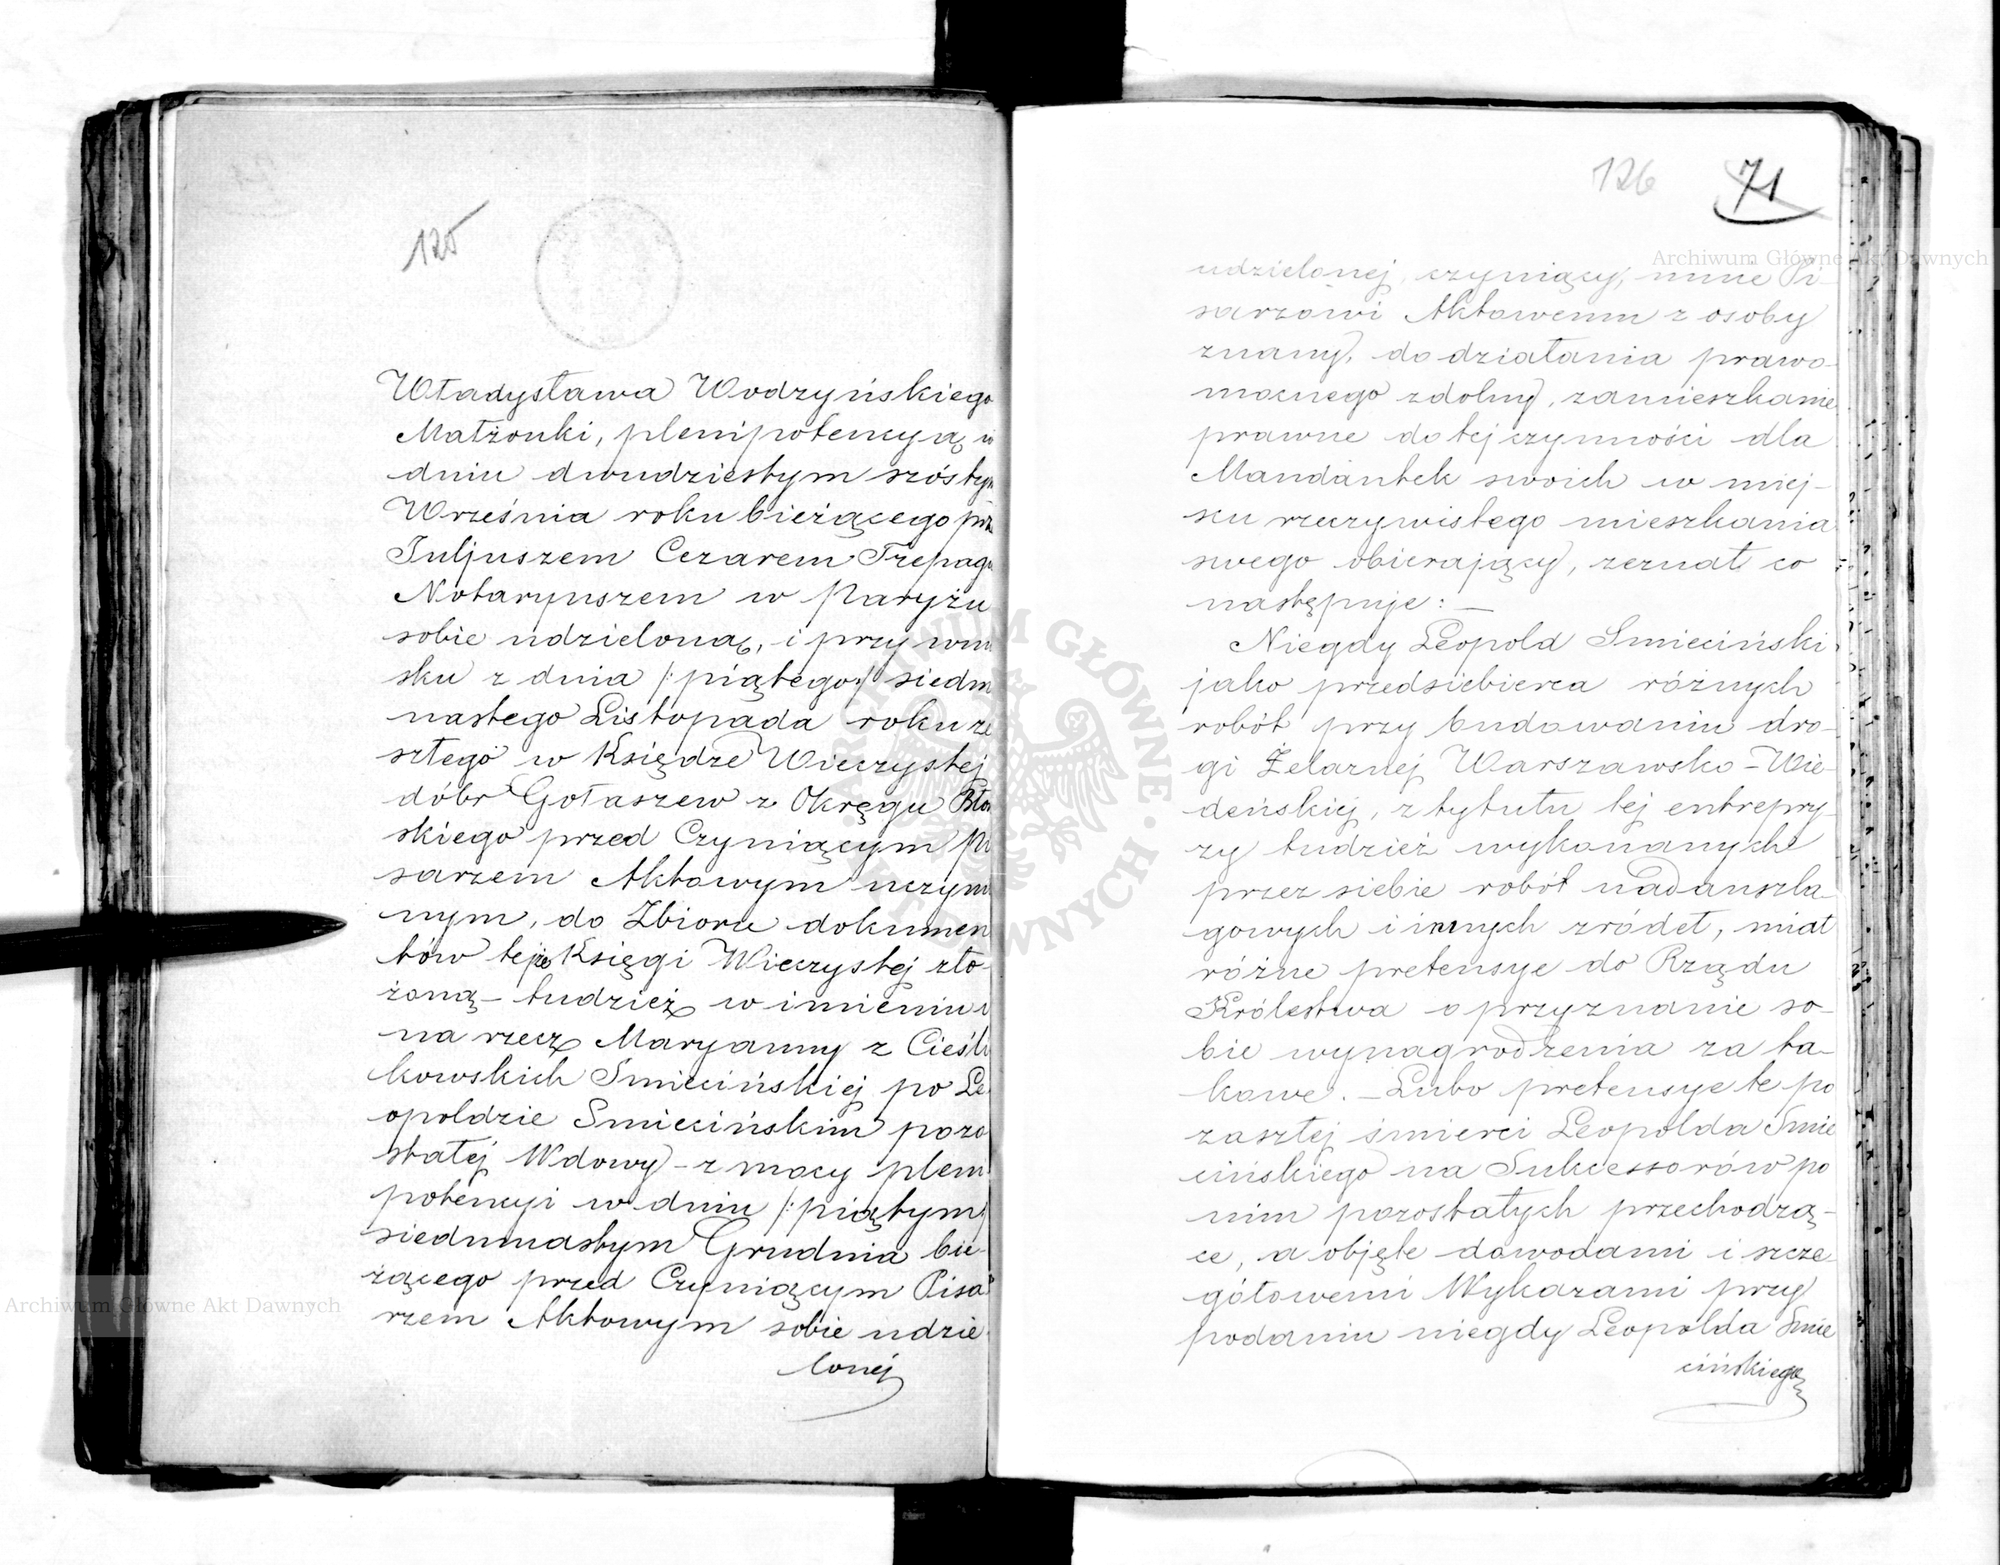 125
Władysława Wodzyńskiego
Małżonki, plenipotencyą w
dniu dwudziestym szóstym
Września roku bieżącego prz
Juljuszem Cezarem Trepagn
Notaryuszem w Paryżu
sobie udzieloną, i przy wnio
sku z dnia /:piątego:/ siedm
nastego Listopada roku ze
szłego w Księdze Wieczystej
dóbr Gołaszew z Okręgu Błoń
skiego przed Czyniącym Pi
sarzem Aktowym uczynio
nym, do Zbioru dokumen
tów tejże Księgi Wieczystej zło-
żoną – tudzież w imieniu i
na rzecz Maryanny z Cieśli
kowskich Smiecińskiej po Le
opoldzie Smiecińskim pozo
stałej Wdowy – z mocy pleni
potencyi w dniu /:piątym/
siedmnastym Grudnia bie-
żącego przed Czyniącym Pisa
rzem Aktowym sobie udzie
lonej
126 71
udzielonej, czyniący, mnie Pi-
sarzowi Aktowemu z osoby
znany, do działania prawo-
mocnego zdolny, zamieszkanie
prawne do tej czynności dla
Mandantek swoich w miej-
scu rzeczywistego mieszkania
swego obierający, zeznał co
następuje: —
Niegdy Leopold Smieciński
jako przedsiebierca różnych
robót przy budowaniu dro-
gi Żelaznej Warszawsko-Wie-
deńskiej, z tytułu tej entrepry-
zy tudzież wykonanych
przez siebie robót nadanszla-
gowych i innych zródeł, miał
różne pretensye do Rządu
Królestwa o przyznanie so-
bie wynagrodzenia za ta-
kowe. – Lubo pretensye te po
zaszłej śmierci Leopolda Smie
cińskiego na Sukcessorów po
nim pozostałych przechodzą-
ce, a objęte dowodami i szcze-
gółowemi Wykazami przy
podaniu niegdy Leopolda Smie
cińskiego
Archiwum Główne Akt Dawnych
Archiwum Główne Akt Dawnych
ARCHIWUM GŁÓWNE AKT DAWNYCH